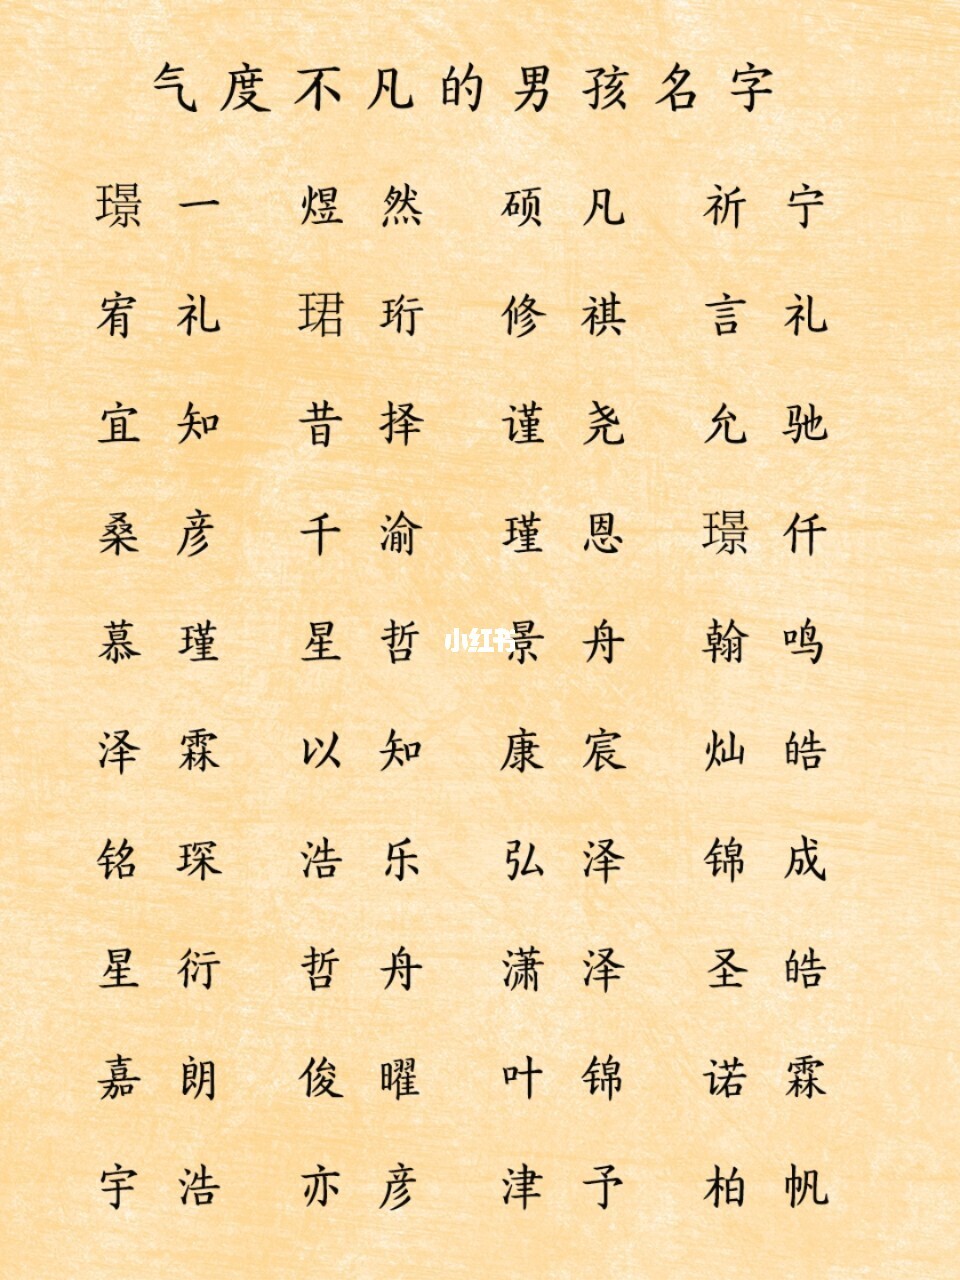 气度不凡的男孩名字
璟一 煜然 硕凡 祈宁
宥礼 珺珩 修祺 言礼
宜知 昔择 谨尧 允驰
桑彦 千渝 瑾恩 璟仟
慕瑾 星哲 景舟 翰鸣
小红书
泽霖 以知 康宸 灿皓
铭琛 浩乐 弘泽 锦成
星衍 哲舟 潇泽 圣皓
嘉朗 俊曜 叶锦 诺霖
宇浩 亦彦 津予 柏帆